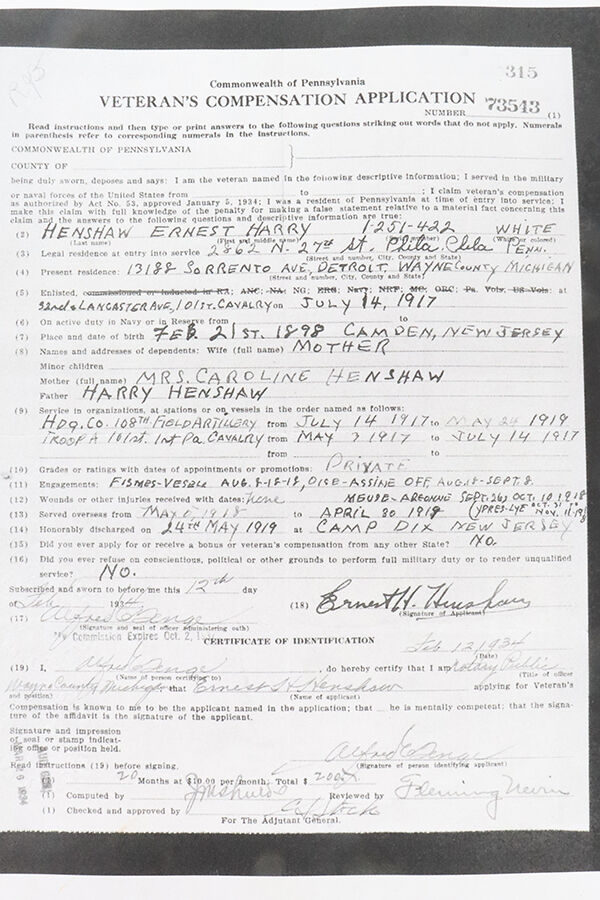 315
Commonwealth of Pennsylvania
VETERAN'S COMPENSATION APPLICATION
NUMBER 73543 (1)
Read instructions and then type or print answers to the following questions striking out words that do not apply. Numerals
in parenthesis refer to corresponding numerals in the instructions.
COMMONWEALTH OF PENNSYLVANIA
COUNTY OF
being duly sworn, deposes and says: I am the veteran named in the following descriptive information; I served in the military
or naval forces of the United States from to ; I claim veteran's compensation
as authorized by Act No. 53, approved January 5, 1934; I was a resident of Pennsylvania at time of entry into service; I
make this claim with full knowledge of the penalty for making a false statement relative to a material fact concerning this
claim and the answers to the following questions and descriptive information are true:
(2) HENSHAW ERNEST HARRY 1-251-422 WHITE
(Last name) (First and middle name) (White or colored)
(3) Legal residence at entry into service 2862 N. 27th St. Phila. Phila Penn.
(Street and number, City, County and State)
(4) Present residence: 13188 SORRENTO AVE, DETROIT, WAYNE COUNTY MICHIGAN
(Street and number, City, County and State)
(5) Enlisted, commissioned or inducted in RA; ANC; NA; NG; ERG; Navy; NRF; MC; ORC; Pa. Vols, US Vols: at
52nd & LANCASTER AVE, 101ST. CAVALRY on JULY 14, 1917
(6) On active duty in Navy or in Reserve from to
(7) Place and date of birth FEB. 21ST. 1898 CAMDEN, NEW JERSEY
(8) Names and addresses of dependents: Wife (full name) MOTHER
Minor children
Mother (full name) MRS. CAROLINE HENSHAW
Father HARRY HENSHAW
(9) Service in organizations, at stations or on vessels in the order named as follows:
HDQ. CO. 108TH FIELD ARTILLERY from JULY 14 1917 to MAY 24 1919
TROOP A 101st. 1st Pa CAVALRY from MAY 7 1917 to JULY 14 1917
from to
(10) Grades or ratings with dates of appointments or promotions: PRIVATE
(11) Engagements: FISMES-VESLE AUG. 8-18-18, OISE-AISSNE OFF. AUG. 18-SEPT. 8.
(12) Wounds or other injuries received with dates: none MEUSE-ARGONNE SEPT. 26, OCT. 10 1918
(13) Served overseas from MAY 1918 to APRIL 30 1919 (YPRES-LYE OCT. 31 TO NOV. 11-1918)
(14) Honorably discharged on 24TH MAY 1919 at CAMP DIX NEW JERSEY
(15) Did you ever apply for or receive a bonus or veteran's compensation from any other State? NO.
(16) Did you ever refuse on conscientious, political or other grounds to perform full military duty or to render unqualified
service? NO.
Subscribed and sworn to before me this 12th day
of Feb 1934 (18) Ernest H. Henshaw
(Signature of Applicant)
(17)
(Signature and seal of officer administering oath)
My Commission Expires Oct. 2,
CERTIFICATE OF IDENTIFICATION
Feb 12 1934
(Date)
(19) I, do hereby certify that I am Notary Public
(Name of person certifying to) (Title of officer
Wayne County, Michigan that Ernest H Henshaw applying for Veteran's
and position) (Name of applicant)
Compensation is known to me to be the applicant named in the application; that he is mentally competent; that the signa-
ture of the affidavit is the signature of the applicant.
Signature and impression
of seal or stamp indicat-
ing office or position held.
(Signature of person identifying applicant)
Read instructions (19) before signing.
(1) 20 Months at $10.00 per month, Total $ 200
(1) Computed by Reviewed by Fleming Nevin
(1) Checked and approved by
For The Adjutant General.